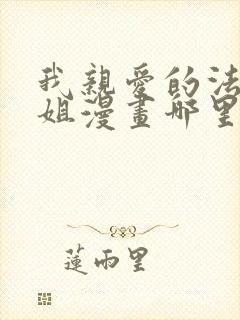 我親愛的法
姐漫畫哪里
蓮雨里